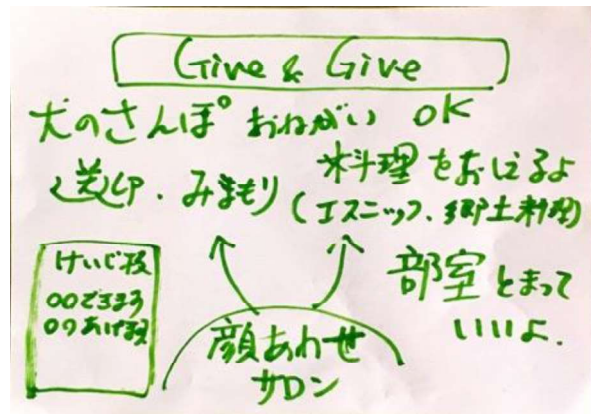 Give & Give
犬のさんぽ おねがい OK
送迎・みまもり
料理をおしえるよ
(エスニック、郷土料理)
けいじ板
〇〇できます
〇〇あげます
部室とまって
いいよ.
顔あわせ
サロン